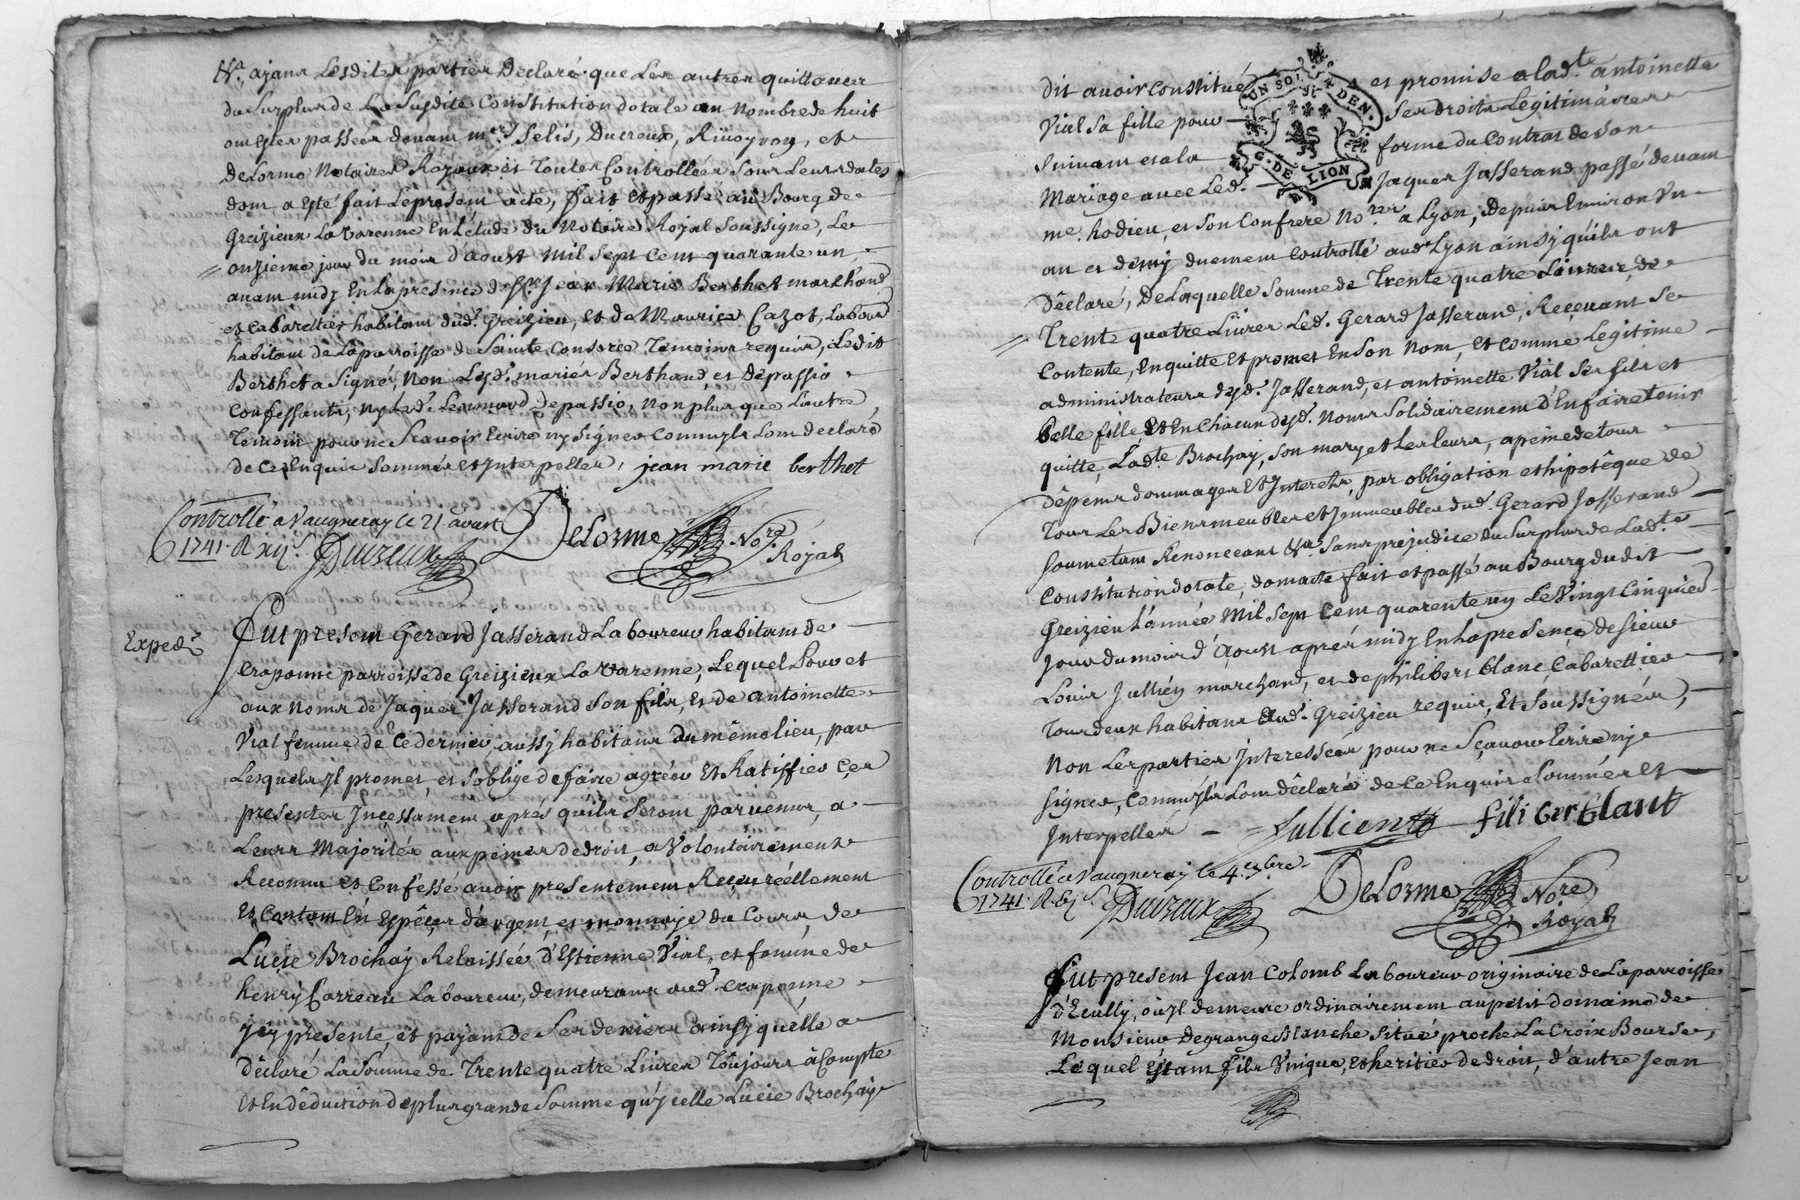 &a. ajans Lesdites parties Declaré que Les autres quittances
du Surplus de La Susdite Constitution dotale au nombre de huit
ont estes passes devant mes. Selis, Ducreux, Rivoyron, et
DeLorme Notaires Royaux et Toutes Controllées Sous Leurs dates
dont a esté fait Le present acte, fait et passé au Bourg de
Greizieux La Varenne En L'étude du Notaire Royal Soussigné, Le
onzieme jour du mois d'aoust Mil Sept Cent quarante un
avant midy En La presence de Sr. Jean Marie Berthet marchand
et Cabarettier habitant dud. Greizieu, et de Maurice Cazot, Labour
habitant de La parroisse de Sainte Consorce Temoins requis, Ledit
Berthet a Signé, Non Lesd. mariés Berthaud, et depassio
Confessants, ny Led. Leonnard depassio, Non plus que L'autre
Temoin pour ne Scavoir Ecrire ny Signer Comm'ils L'ont declaré
de Ce Enquis Sommés et Interpellés, jean marie berthet
Controllé a Vaugneray le 21 aoust
1741. R xij s. Duizeux
DeLorme Nore. Royal
Exped.
Fut present Gerard Jasserand Laboureur habitant de
Craponne parroisse de Greizieux La Varenne, Lequel Pour et
aux Noms de Jaques Jasserand Son fils, Et de antoinette
Vial femme de Ce dernier, aussy habitans du même lieu, par
Lesquels Jl promet, et S'oblige de faire agréer Et Ratiffier Ces
presentes Jncessament après qu'ils Seront parvenus, a
Leurs Majorités aux peines de droit, a Volontairement
Reconnu Et Confessé avoir presentement Reçeu réellement
Et Contant En Espêces d'argent, et monnoye du Cours de
Lucie Brochay Relaissée d'Estienne Vial, et femme de
henry Carreau Laboureur, demeurants aud. Craponne
jcy presente, et payant de Ses deniers Cainsy quelle a
Déclaré La Somme de Trente quatre Livres Toujours à Compte
Et En déduction de plus grande Somme qu'jcelle Lucie Brochay
dit avoir Constitué et promise a lad.te antoinette
Vial Sa fille pour Ses droits Légitimaires
Suivant et a la forme du Contrat de Son
Mariage avec Led. Jaques Jasserand passé devant
me. hodieu, et Son Confrere Nores a Lyon, depuis Environ Un
an et demy duement Controllé aud. Lyon ainsy qu'ils ont
Déclaré, De Laquelle Somme de Trente quatre Livres, de
Trente quatre Livres Led. Gerard Jasserand, Reçevant Se
Contente, En quitte Et promet En Son Nom, Et Comme Legitime
administrateur desd. Jasserand, et antoinette Vial Ses fils et
belle fille Et En Chacun desd. Noms Solidairement d'En faire tenir
quitte, Lad.te Brochay, Son mary et Les Leurs, a peine de tous
dépens dommages Et Jnterets, par obligation et hipotêque de
Tous Les Biens meubles et Jmmeubles dud. Gerard Jasserand
Soumettant Renonceant &a. Sans préjudice du Surplus de Lad.te
Constitution dotale, dont acte fait et passé au Bourg dudit
Greizieu L'année Mil Sept Cent quarente un Le Vingt Cinquieme
Jour du mois d'Aoust aprés midy En La presence de Sieur
Louis Jullien marchand, et de philibert blanc, Cabarettier
Tous deux habitans dud. Greizieu requis, Et Soussignés,
Non Les parties Jnteressées pour ne Sçavoir Ecrire ny
Signer, Comm'ils L'ont déclaré de Ce Enquis Sommés et
Jnterpellés
Jullien filiber blant
Controllé a Vaugneray le 4. 7bre.
1741. R Duizeux
DeLorme Nore Royal
Fut present Jean Colomb Laboureur originaire de La parroisse
d'Ecully, où Jl demeure ordinairement au petit domaine de
Monsieur Degrangeblanche Situé proche La Croix Bourse,
Lequel Estant fils Vnique, et heritier de droit, d'autre Jean
UN SOL 4 DEN.
G. DE LION